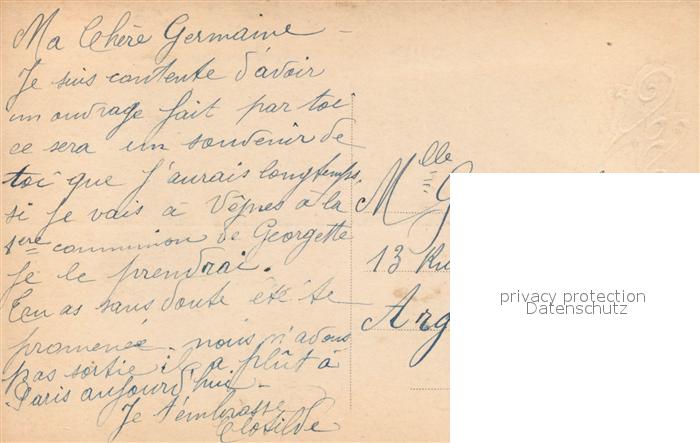 Ma Chère Germaine -
Je suis contente d'avoir
un ouvrage fait par toi
ce sera un souvenir de
toi que j'aurais longtemps.
si je vais à Vêpres à la
1ere communion de Georgette
je le prendrai.
Tu as sans doute été te
promenée. nous n'avons
pas sortie il a plût à
Paris aujourd'hui -
Je t'embrasse
Clotilde
Mlle G
13 Ru
Arg
privacy protection
Datenschutz